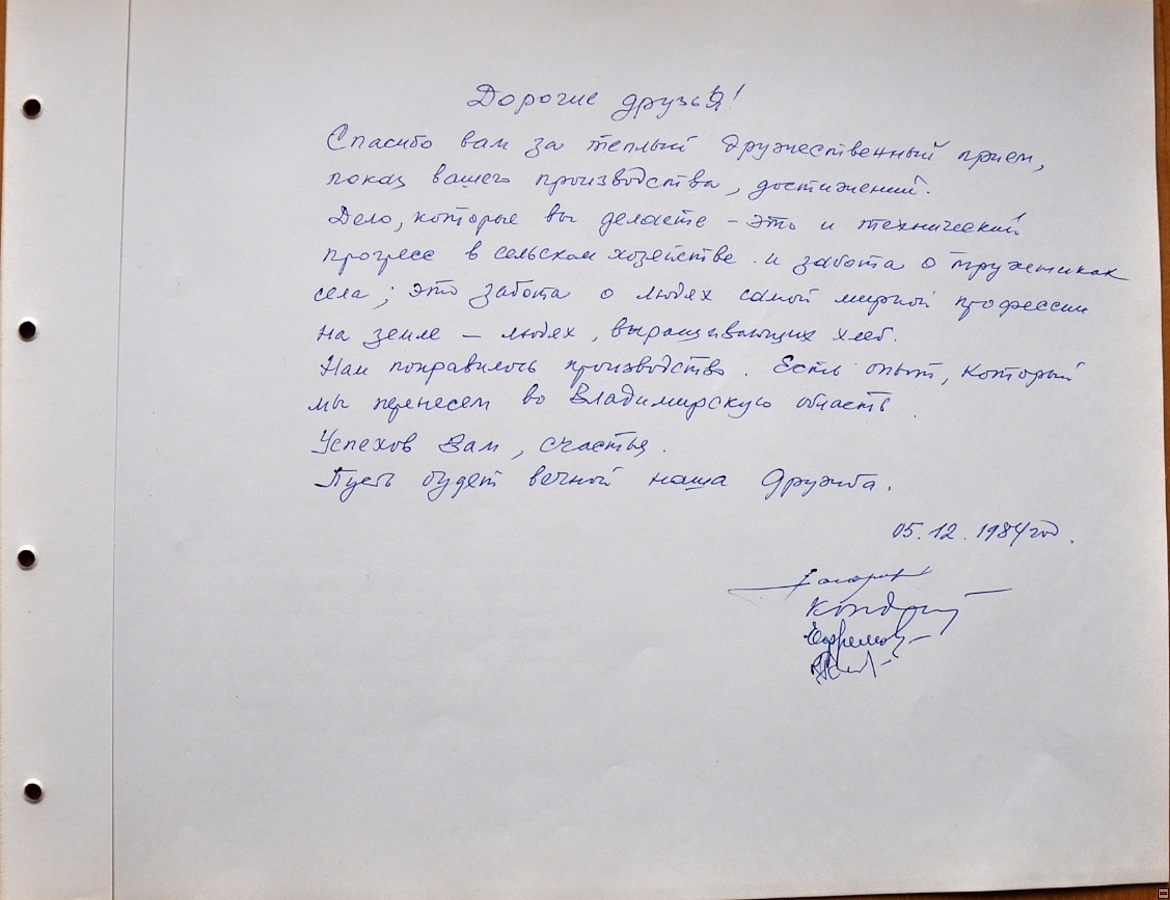 Дорогие друзья!
Спасибо вам за теплый дружественный прием,
показ вашего производства, достижений.
Дело, которые вы делаете – это и технический
прогресс в сельском хозяйстве и забота о тружениках
села; это забота о людях самой мирной профессии
на земле – людях, выращивающих хлеб.
Нам понравилось производство. Есть опыт, который
мы перенесем во Владимирскую область.
Успехов Вам, счастья.
Пусть будет вечной наша дружба.
05.12.1984 год.
Ефремов